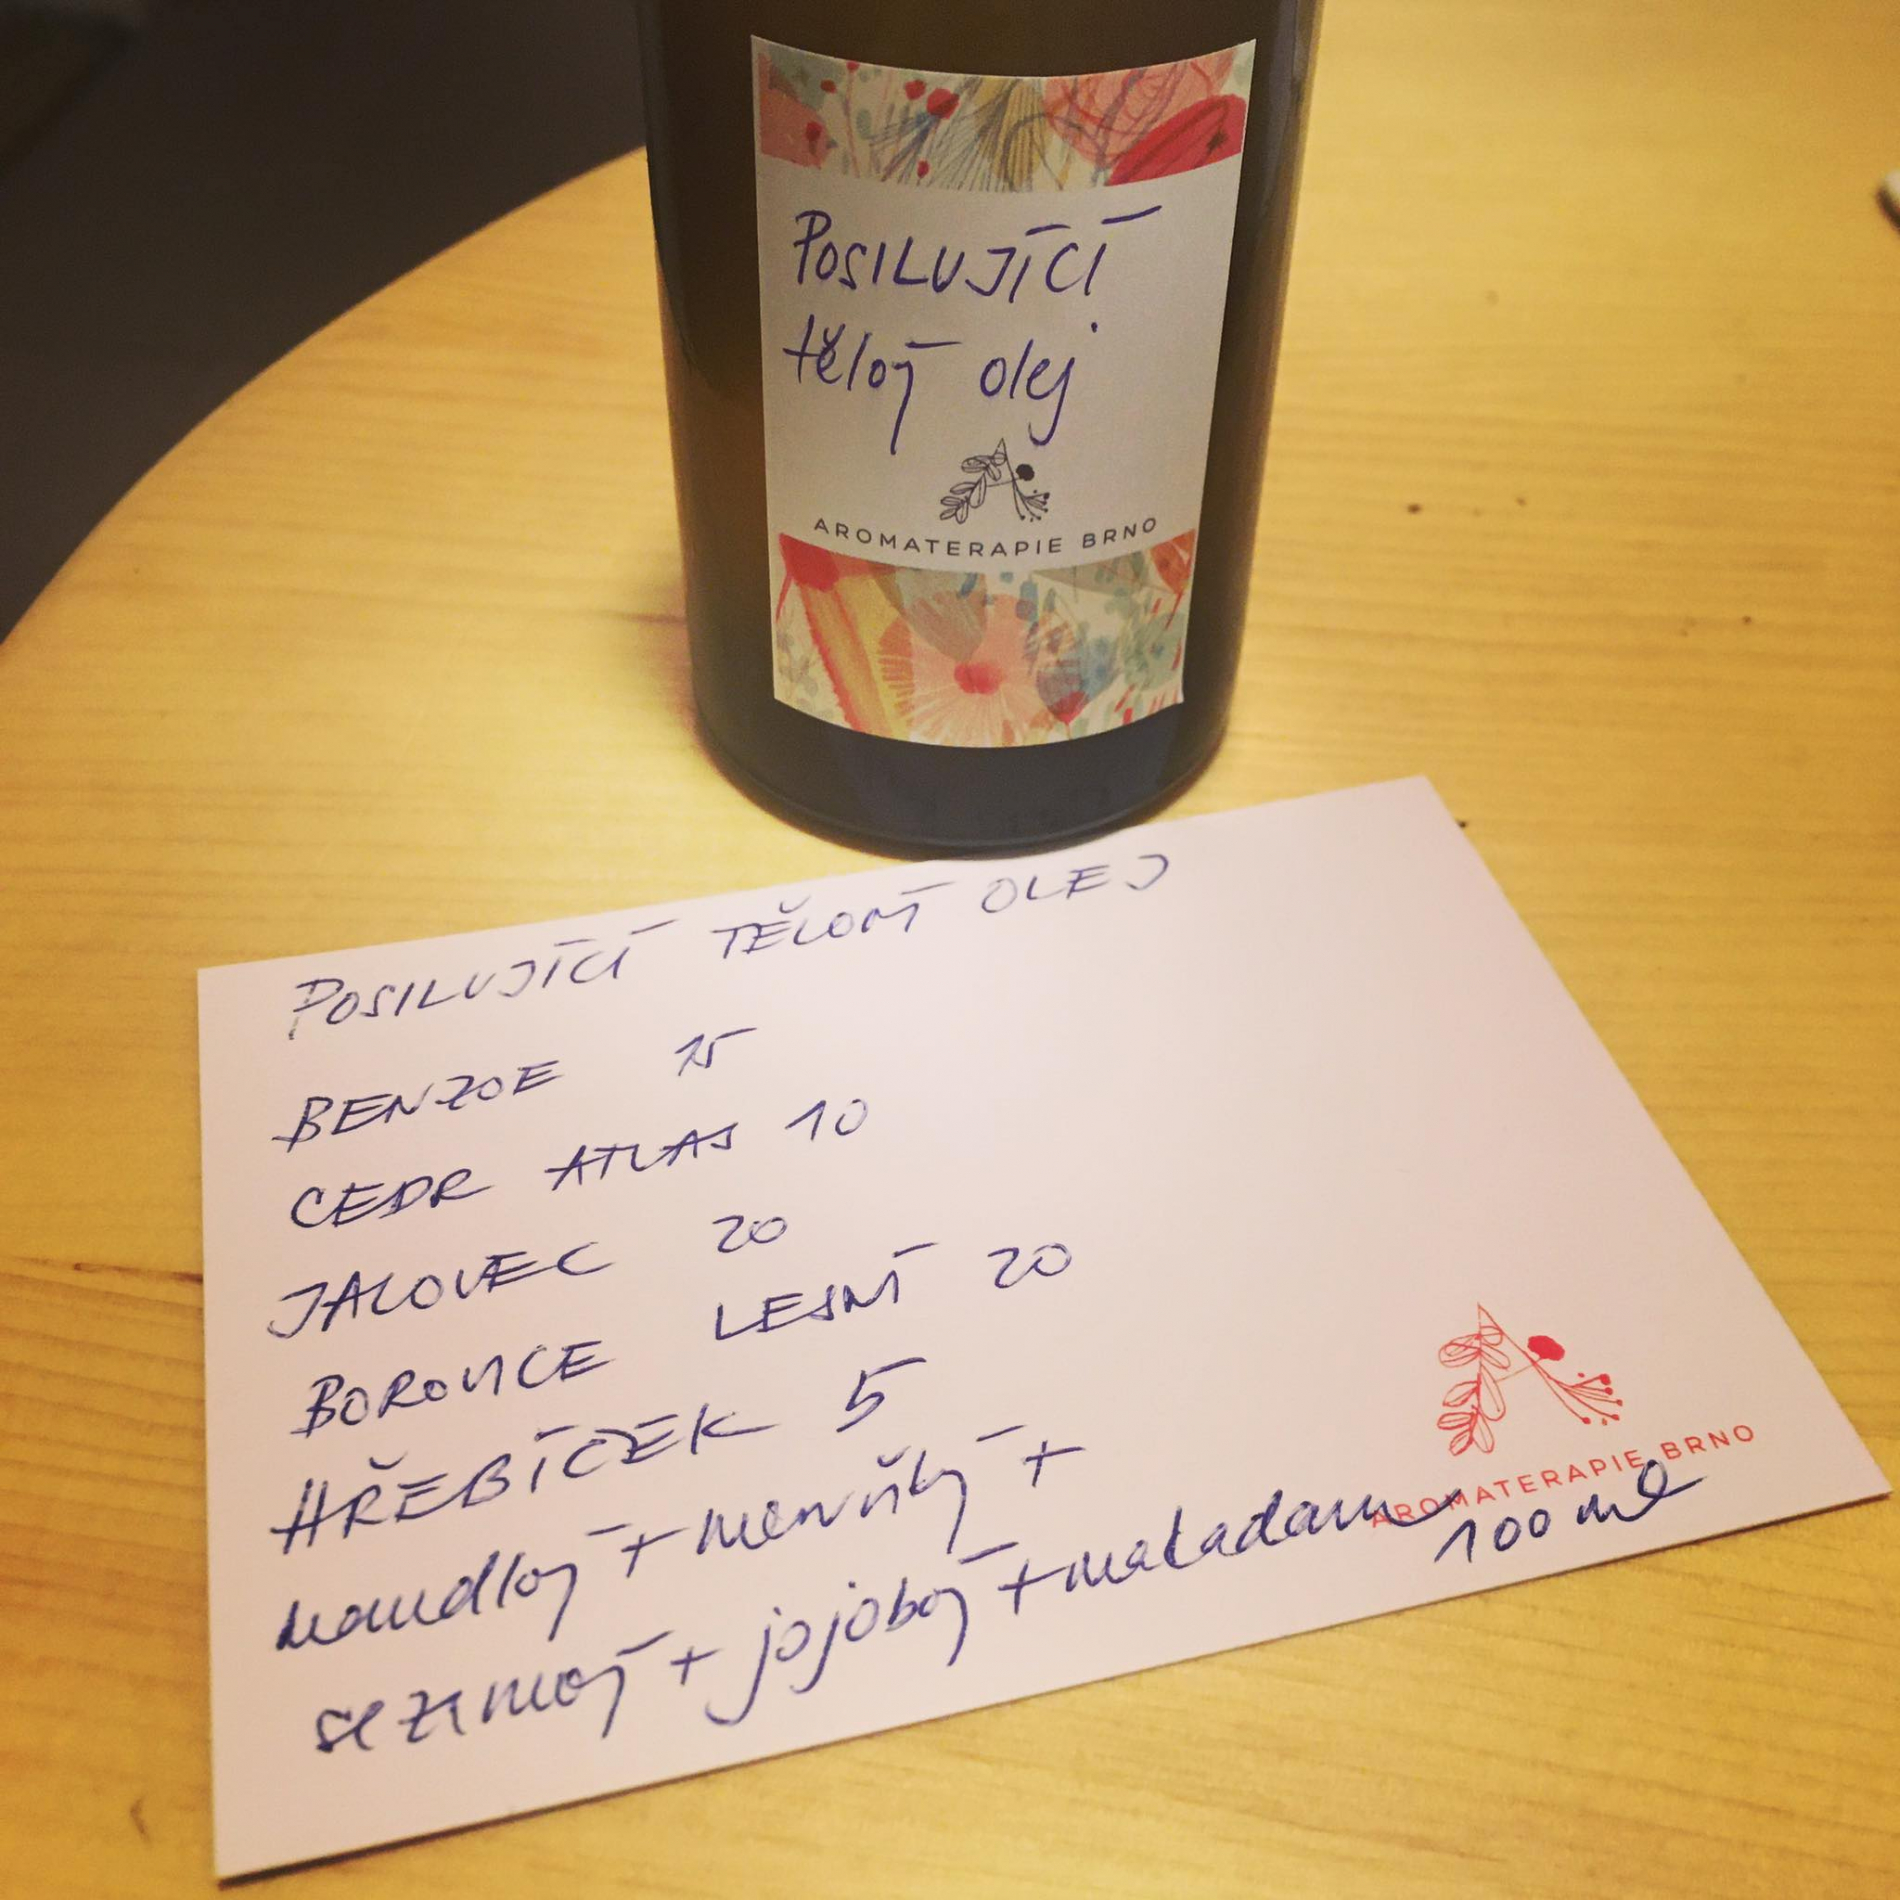 POSILUJÍCÍ
tělový olej
AROMATERAPIE BRNO
POSILUJÍCÍ TĚLOVÝ OLEJ
BENZOE 15
CEDR ATLAS 10
JALOVEC 20
BOROVICE LESNÍ 20
HŘEBÍČEK 5
mandlový + meruňkový +
sezamový + jojobový + makadam
100 ml
AROMATERAPIE BRNO